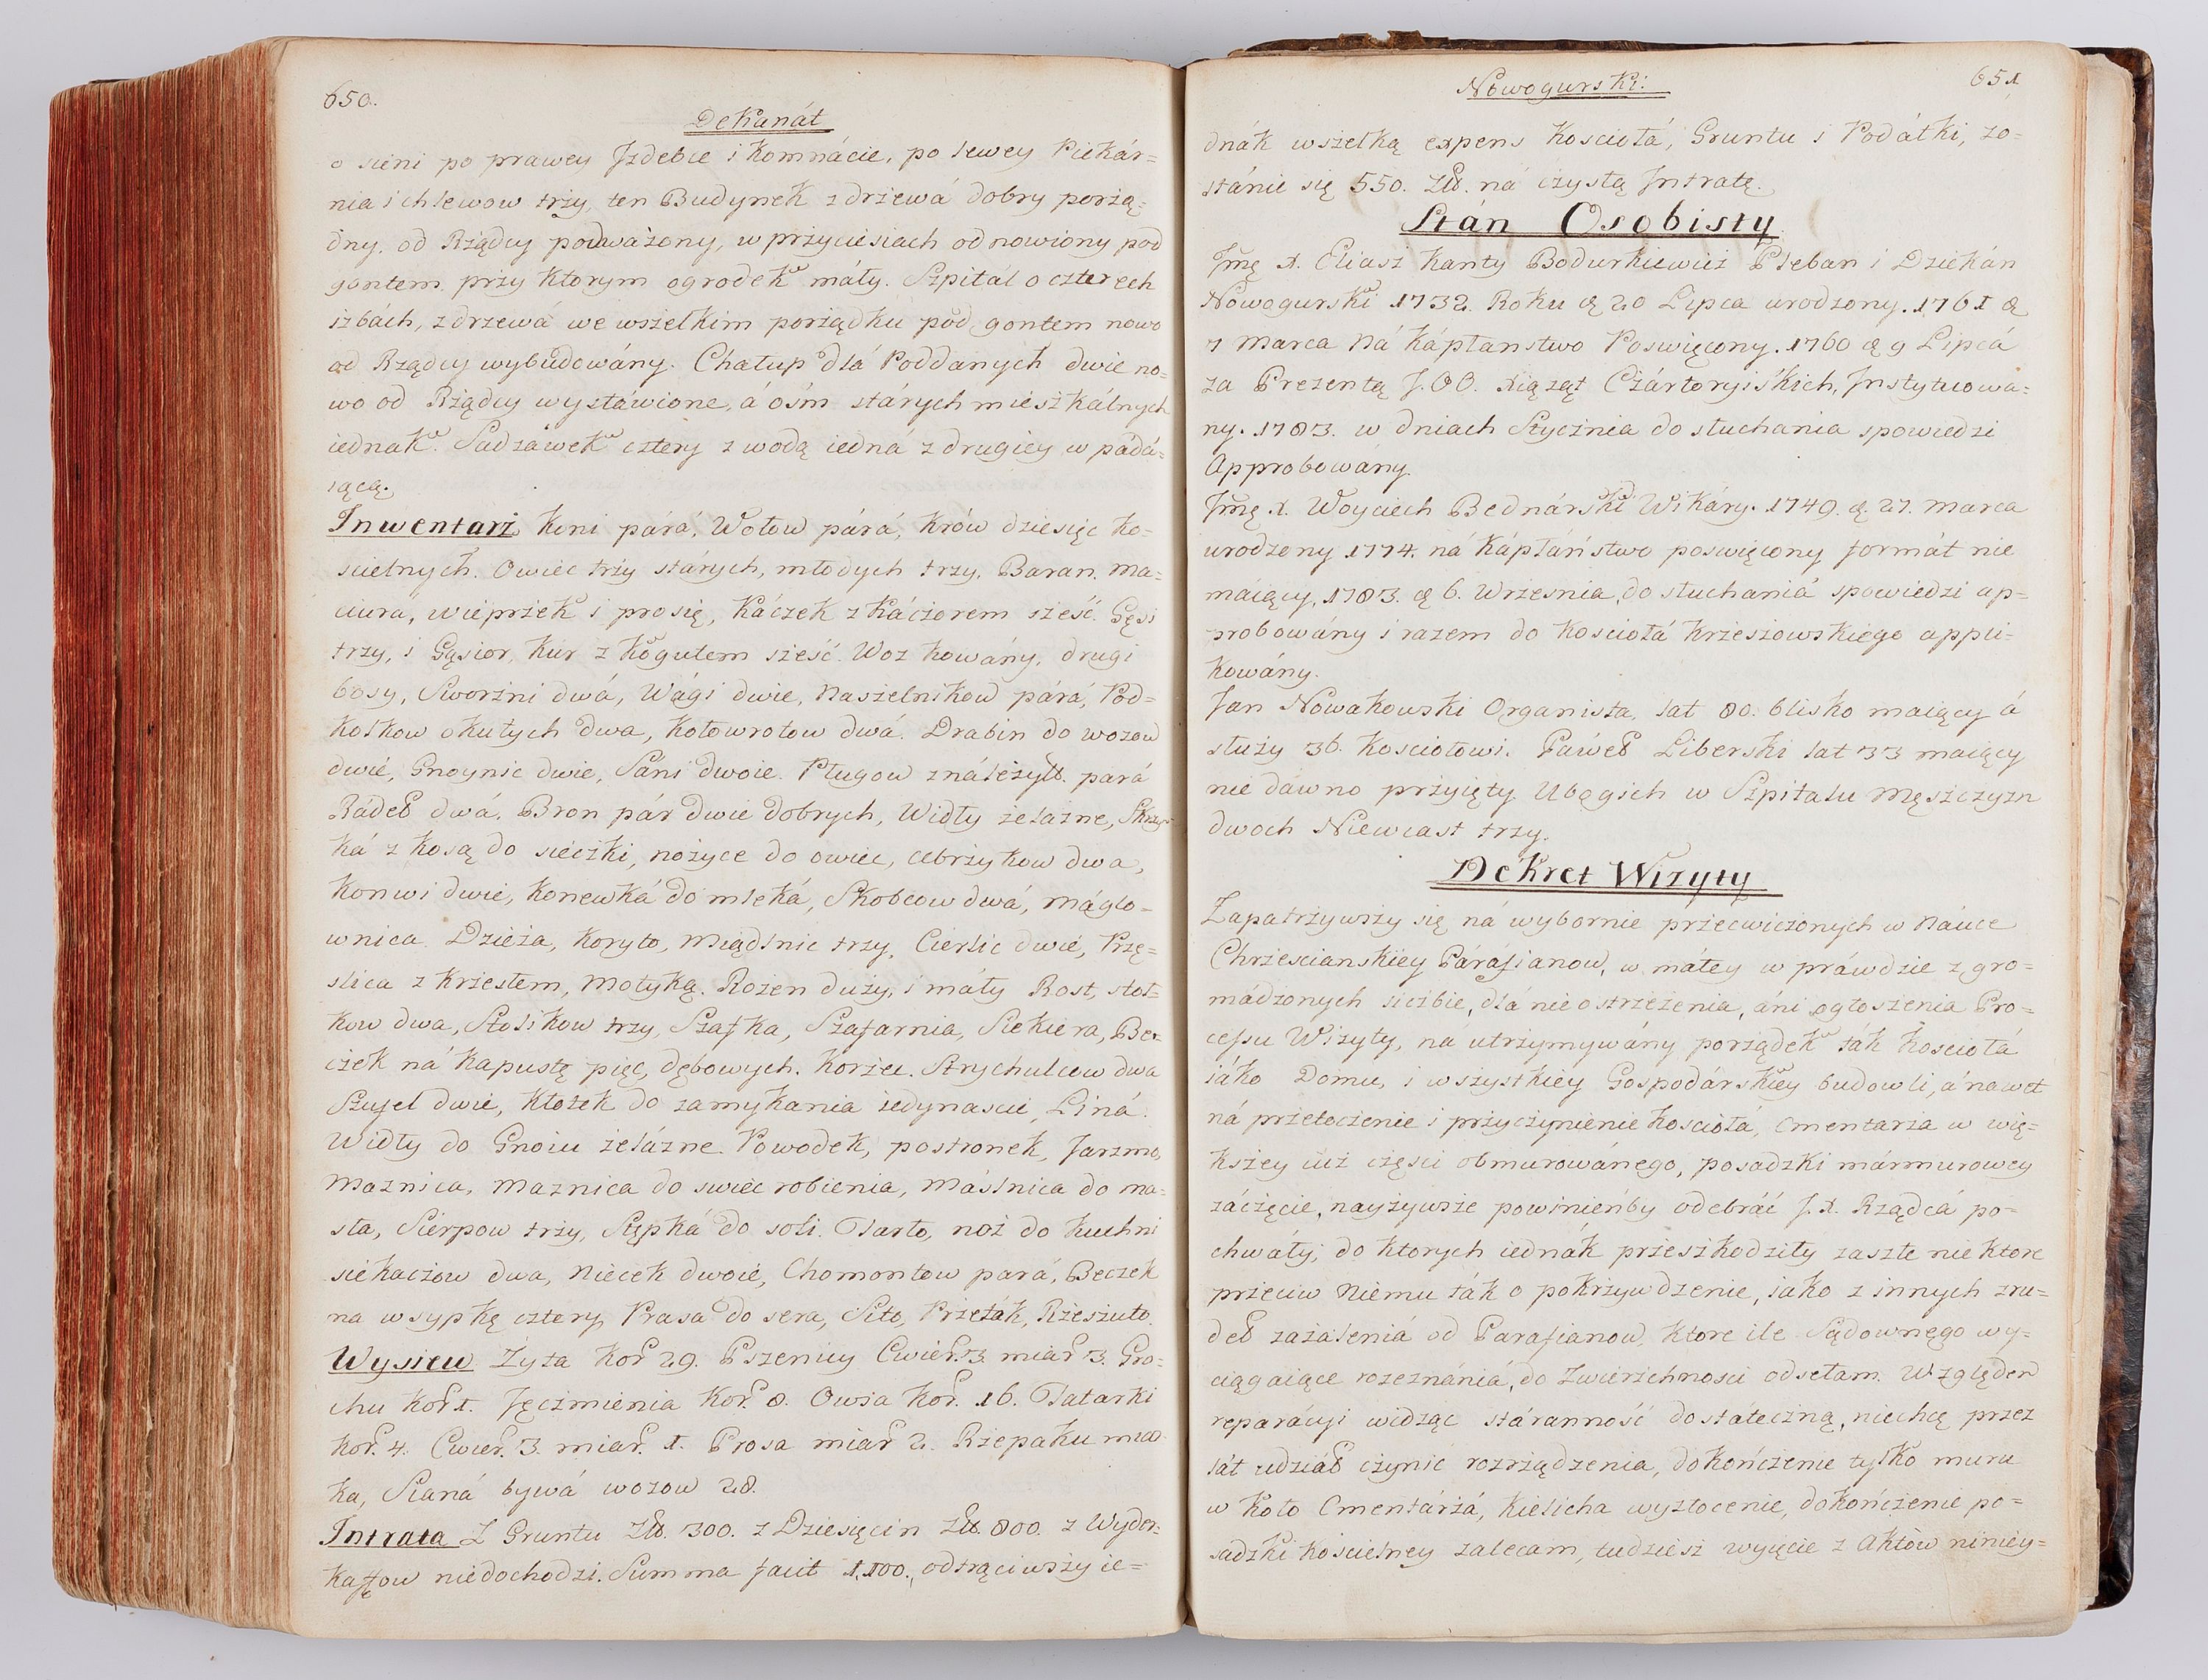 650.
Dekanát
o sieni po prawey Jzdebie i komnácie, po lewey Piekár=
nia i chlewow trży, ten Budynek z drżewá dobry porżą=
dny. od Rżądcy podważony, w prżyciesiach odnowiony pod
gontem. prży ktorym ogrodek máły. Szpitál o czterech
izbách, z drzewá we wszelkim porżądku pod gontem nowo
od Rządcy wybudowány. Chałup dlá Poddanych dwie no=
wo od Rżądcy wystáwione, á ósm stárych mieszkálnych
iednak. Sadzawek cztery z wodą iedná z drugiey w pádá=
iącą.
Inwentarż. Koni párá, Wołow párá, Krów dziesięc ko=
scielnych. Owiec trży stárych, młodych trzy. Baran. Ma=
ciura, wieprżek i prosię, Káczek z Káczorem sześć. Gęsi
trzy, i Gąsior, Kur z Kogutem sześć. Woz kowány, drugi
bosy, Sworżni dwá, Wági dwie, Naszelnikow párá, Pod=
kolkow okutych dwa, Kołowrotow dwá. Drabin do wozow
dwie, Gnoynic dwie, Sáni dwoie. Pługow z náleżyt. pará
Rádeł dwá. Bron pár dwie dobrych, Widły żelázne, Skrzyn=
ká z kosą do sieczki, nożyce do owiec, cebrżykow dwa,
Konwi dwie, konewká do mleká, Skobcow dwá, máglo=
wnica. Dzieża, Koryto, Miądlnic trzy. Cierlic dwie, Przę=
slica z krżesłem, Motyką. Rożen duży, i máły Rost, stoł=
kow dwa, Stolikow trzy, Szafka, Szafarnia, Siekiera, Be=
czek ná kapustę pięc, dębowych. Korżec. Strychulcow dwa
Szufel dwie, Kłotek do zamykania iedynascie, Liná.
Widły do Gnoiu żelázne. Powodek, postronek, Jarzmo,
Maznica, Maznica do swiec robienia, Máslnica do ma=
sła, Sierpow trży, Stępká do soli. Tarło, noż do kuchni
siekaczow dwa, Niecek dwoie, Chomontow pará, Beczek
na wsypkę cztery, Prasa do sera, Sito, Prżeták, Rżeszuto.
Wysiew. Żyta kor. 29. Pszenicy Cwier. 3. miar 3. Gro=
chu kor 1. Jęczmienia kor. 8. Owsa kor. 16. Tatarki
kor. 4. Cwier. 3. miar. 1. Prosa miar 2. Rżepaku miar
ka, Sianá bywá wozow 28.
Intrata Z Gruntu Zł. 300. z Dziesięcin Zł. 800. z Wyder=
kaffow niedochodzi. Summa facit 1,100., odtrąciwszy ie=
Nowogurski.
651
dnák wszelką expens Kosciołá, Gruntu i Podátki, zo=
stánie się 550. Zł. ná czystą Jntratę.
Stán Osobisty
Jmę X. Eliasz Kanty Bodurkiewicż Pleban i Dziekán
Nowogurski 1732. Roku d 20 Lipca urodzony. 1761 d
7 Marca Ná Kápłanstwo Poswięcony. 1760 d 9 Lipcá
za Prezentą J.OO. Xiążąt Cżártoryiskich, Jnstytuowa=
ny. 1783. w dniach Stycżnia do słuchania spowiedzi
Approbowány.
Jmę X. Woyciech Bednárski Wikáry. 1749. d. 27. Marca
urodzony 1774. ná Kápłáństwo poswięcony formát nie
máiący, 1783. d 6. Wrzesnia, do słuchaniá spowiedzi ap=
probowány i razem do Kosciołá Krżeszowskiego appli=
kowány.
Jan Nowakowski Organista, lat 80. blisko maiący á
służy 36. Kosciołowi. Páweł Liberski lat 33 maiący
nie dáwno prżyięty. Ubogich w Szpitalu Męszczyzn
dwoch Niewiast trzy.
Dekret Wizyty
Zapatrżywszy się ná wybornie przecwiczonych w Náuce
Chrżescianskiey Páráfianow, w máłey w práwdzie zgro=
mádzonych liczbie, dlá nie ostrzeżenia, áni ogłoszenia Pro=
cessu Wizyty, na utrzymywány porządek ták Kosciołá
iáko Domu, i wszystkiey Gospodárskiey budowli, á nawet
ná przełoczenie i prżyczynienie Kosciołá, Cmentarża w wię=
kszey iuż części obmurowánego, posadzki mármurowey
záczęcie, nayżywsze powinienby odebráć J. X. Rządcá po=
chwáły, do ktorych iednák przeszkodziły zaszłe niektore
prżeciw Niemu ták o pokrżywdzenie, iako z innych zru=
deł zażaleniá od Parafianow, ktore ile Sądownego wy=
ciągaiące rozeznániá, do Zwierżchnosci odsełam. Względem
reparácyi widząc stáranność dostateczną, niechcę przez
lát udział czynić rozrżądzenia, dokończenie tylko muru
w koło Cmentárżá, kielicha wyzłocenie, dokończenie po=
sadzki koscielney zalecam, tudziesz wyięcie z Aktów niniey=